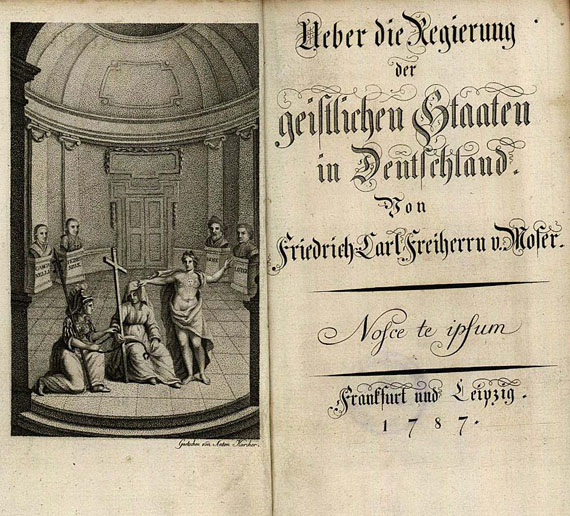 Ueber die Regierung
der
geistlichen Staaten
in Deutschland.
Von
Friedrich Carl Freiherrn v. Moser.
Nosce te ipsum
Frankfurt und Leipzig.
1787.